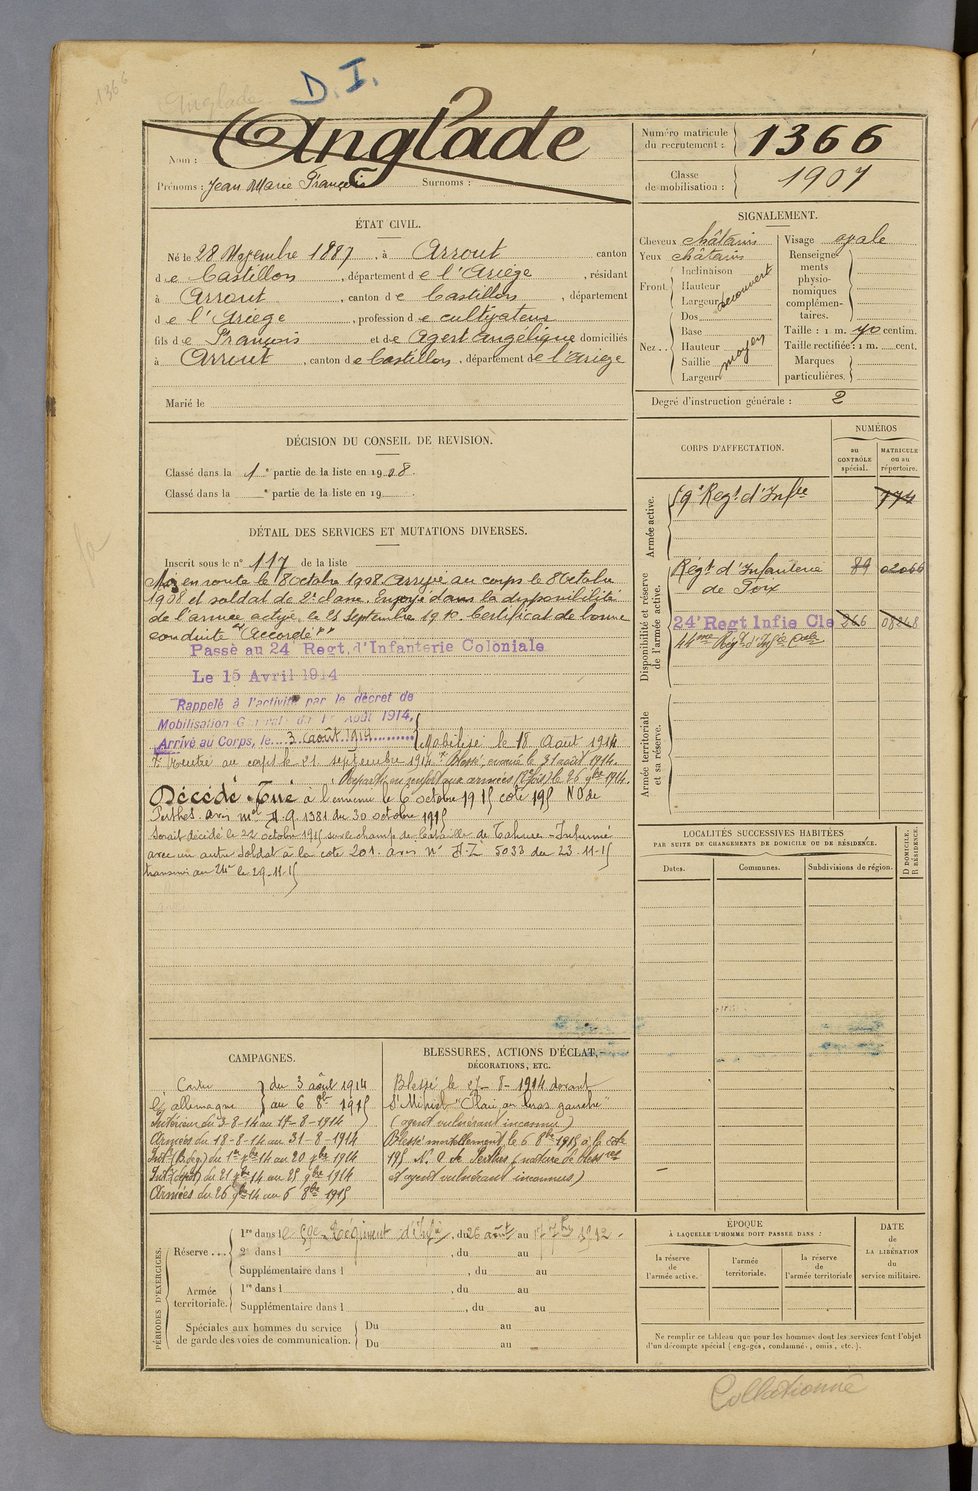 1366
Anglade
D.I.
Nom : Anglade
Prénoms : Jean Marie François Surnoms :
Numéro matricule du recrutement : 1366
Classe de mobilisation : 1907
ÉTAT CIVIL.
Né le 28 Novembre 1887, à Arrout canton
de Castillon, département de l'Ariège, résidant
à Arrout, canton de Castillon, département
de l'Ariège, profession de cultivateur
fils de François et de Agert Angélique domiciliés
à Arrout, canton de Castillon, département de l'Ariège
Marié le
SIGNALEMENT.
Cheveux châtains
Yeux châtains
Front. Inclinaison
Hauteur
Largeur
découvert
Nez.. Dos
Base
Hauteur
Saillie
Largeur
moyen
Visage ovale
Renseignements physionomiques complémentaires.
Taille : 1 m. 70 centim.
Taille rectifiée : 1 m. cent.
Marques particulières.
Degré d'instruction générale : 2
DÉCISION DU CONSEIL DE REVISION.
Classé dans la 1e partie de la liste en 1908.
Classé dans la e partie de la liste en 19 .
DÉTAIL DES SERVICES ET MUTATIONS DIVERSES.
Inscrit sous le n° 117 de la liste
Mis en route le 8 Octobre 1908. Arrivé au corps le 8 Octobre
1908 et soldat de 2e classe. Envoyé dans la disponibilité
de l'armée active, le 25 Septembre 1910. Certificat de bonne
conduite "Accordé"
Passé au 24 Regt. d'Infanterie Coloniale
Le 15 Avril 1914
Rappelé à l'activité par le décret de
Mobilisation Générale du 1er Août 1914,
Arrivé au Corps, le 3 août 1914
Mobilisé le 18 Août 1914
Rentré au corps le 21 septembre 1914. Blessé, évacué le 31 août 1914.
Reparti en renfort aux armées le 26 9bre 1914.
Décédé Tué à l'ennemi le 6 octobre 1915 cote 195 NO de
Perthes. avis mel A.G. 1381 du 30 octobre 1915
Serait décédé le 22 octobre 1915 sur le champ de bataille de Tahure. Inhumé
avec un autre soldat à la cote 201. avis n° AZ 5033 du 23-11-15
transmis au 24e le 29-11-15
CORPS D'AFFECTATION.
NUMÉROS
au CONTRÔLE spécial.
MATRICULE ou au répertoire.
Armée active.
59e Regt d'Infie
774
Disponibilité et réserve de l'armée active.
Régt d'Infanterie de Foix 89 02066
24e Regt Infie Cle 266 08248
44me Régt d'Infie Cole
Armée territoriale et sa réserve.
LOCALITÉS SUCCESSIVES HABITÉES
PAR SUITE DE CHANGEMENTS DE DOMICILE OU DE RÉSIDENCE.
Dates. Communes. Subdivisions de région. D DOMICILE. R RÉSIDENCE.
CAMPAGNES.
Contre l'allemagne du 3 août 1914
au 6 8bre 1915
Intérieur du 3-8-14 au 17-8-1914
Armées du 18-8-14 au 31-8-1914
Int. du 1er 7bre 14 au 20 7bre 1914
Int. (dépôt) du 21 7bre 14 au 25 9bre 1914
Armées du 26 9bre 14 au 6 8bre 1915
BLESSURES, ACTIONS D'ÉCLAT,
DÉCORATIONS, ETC.
Blessé le 27-8-1914 devant
St Ménist "Plaie au bras gauche"
(agent vulnérant inconnu)
Blessé mortellement le 6 8bre 1915 à la cote
195 N.O. de Perthes (nature de blessures
et agent vulnérant inconnus)
PÉRIODES D'EXERCICES.
Réserve... 1re dans le 59e Régiment d'Infie, du 26 août au 17 7bre 1912.
2e dans l , du au
Supplémentaire dans l , du au
Armée territoriale. 1re dans l , du au
Supplémentaire dans l , du au
Spéciales aux hommes du service de garde des voies de communication. Du au
Du au
ÉPOQUE
À LAQUELLE L'HOMME DOIT PASSER DANS :
la réserve de l'armée active.
l'armée territoriale.
la réserve de l'armée territoriale
DATE de LA LIBÉRATION du service militaire.
Ne remplir ce tableau que pour les hommes dont les services font l'objet
d'un décompte spécial (engagés, condamnés, omis, etc.).
Collationné